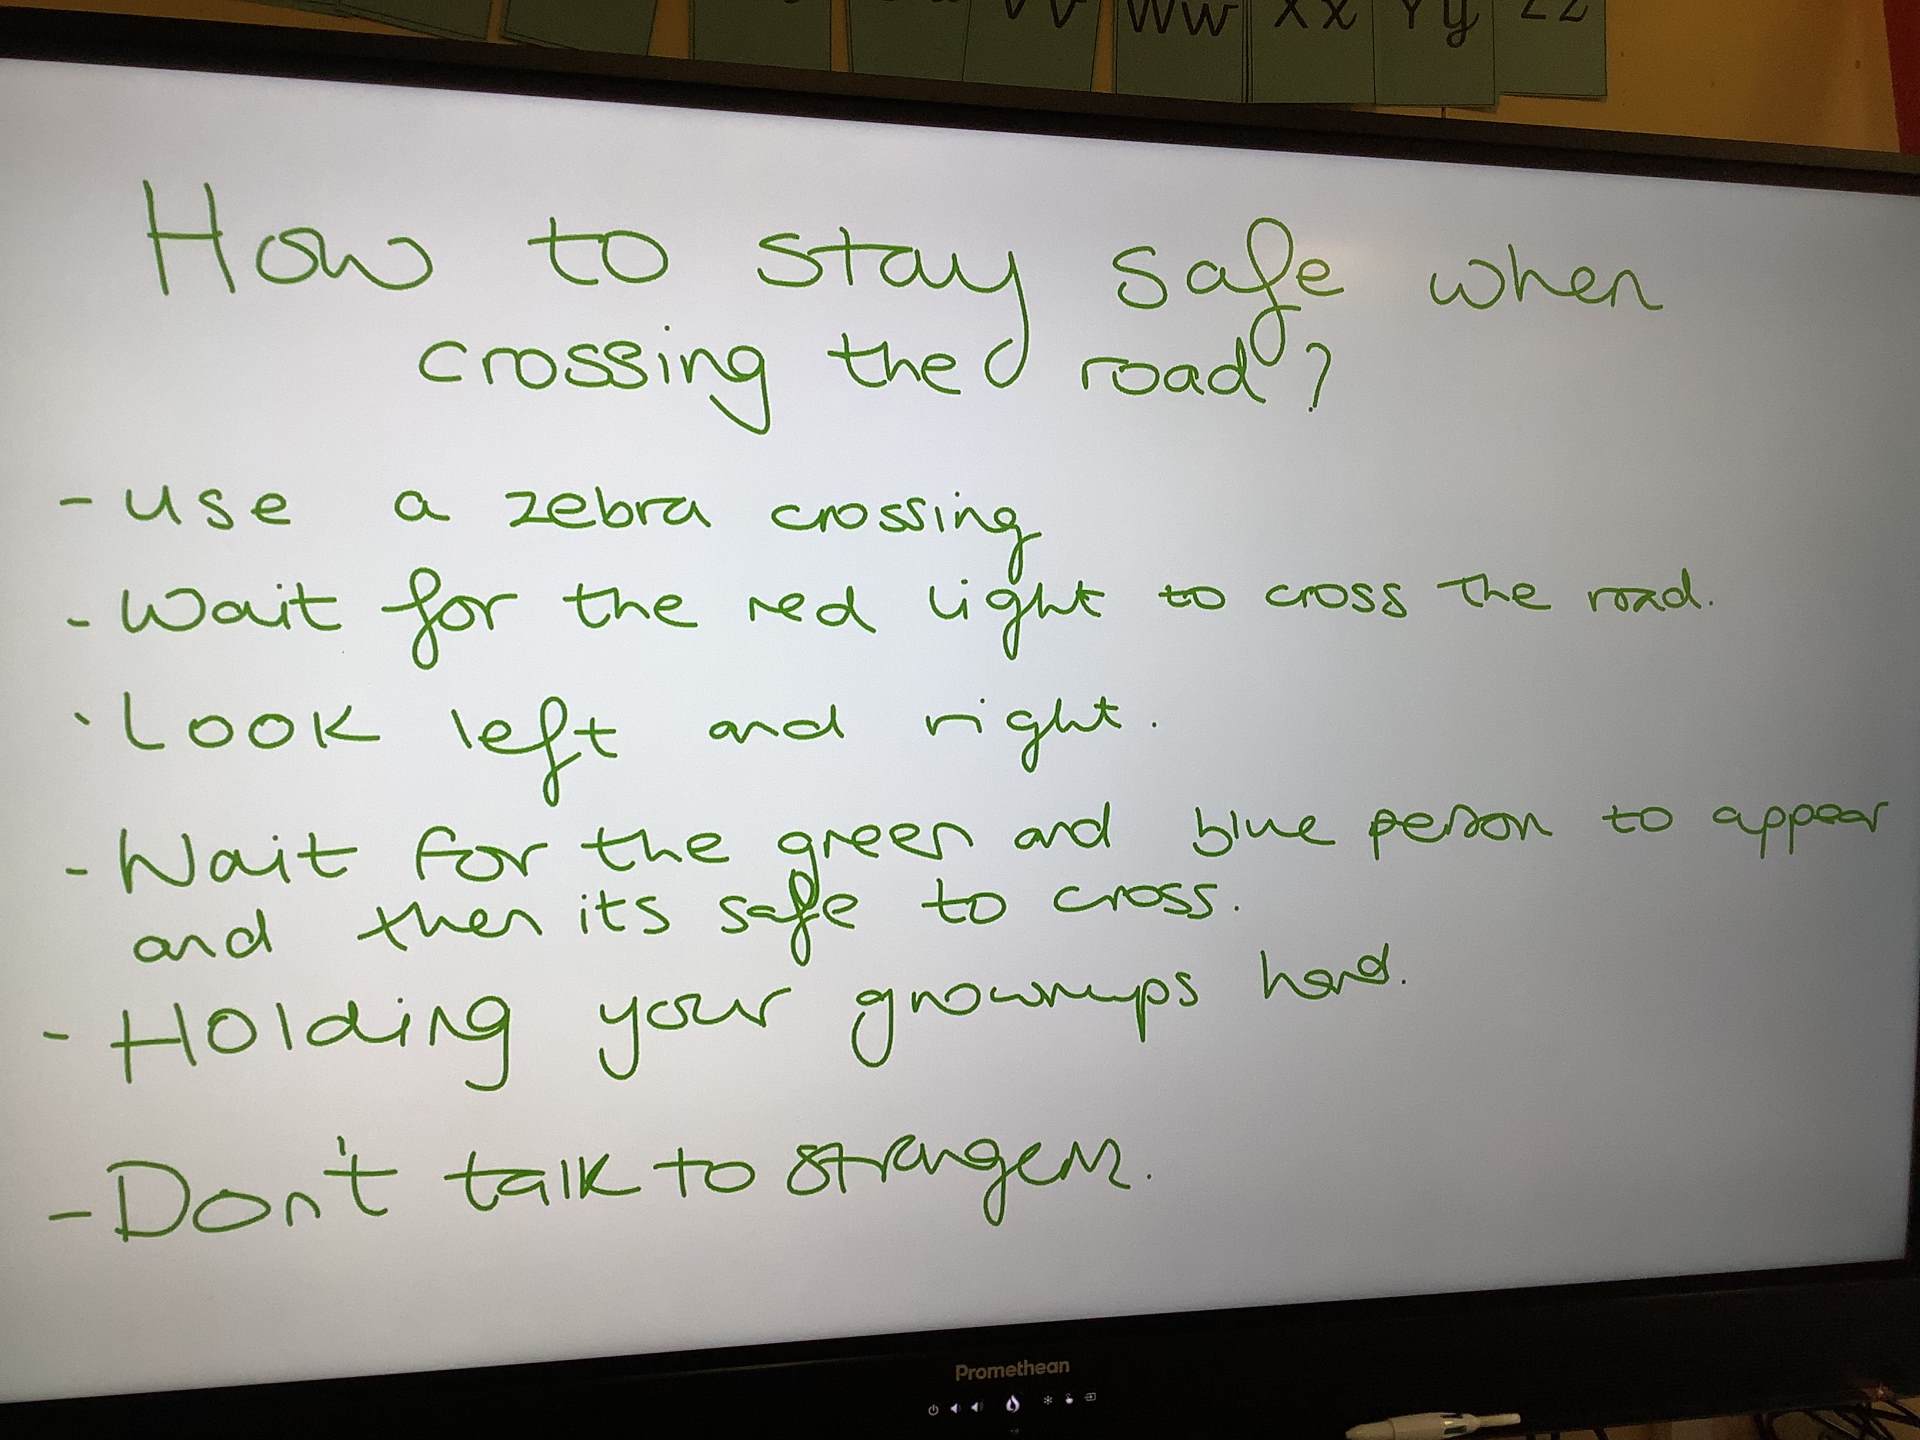 Ww Xx Yy Zz
How to stay safe when
crossing the road?
- use a zebra crossing
- Wait for the red light to cross the road.
- Look left and right.
- Wait for the green and blue person to appear
and then its safe to cross.
- Holding your grownups hand.
- Don't talk to strangers.
Promethean